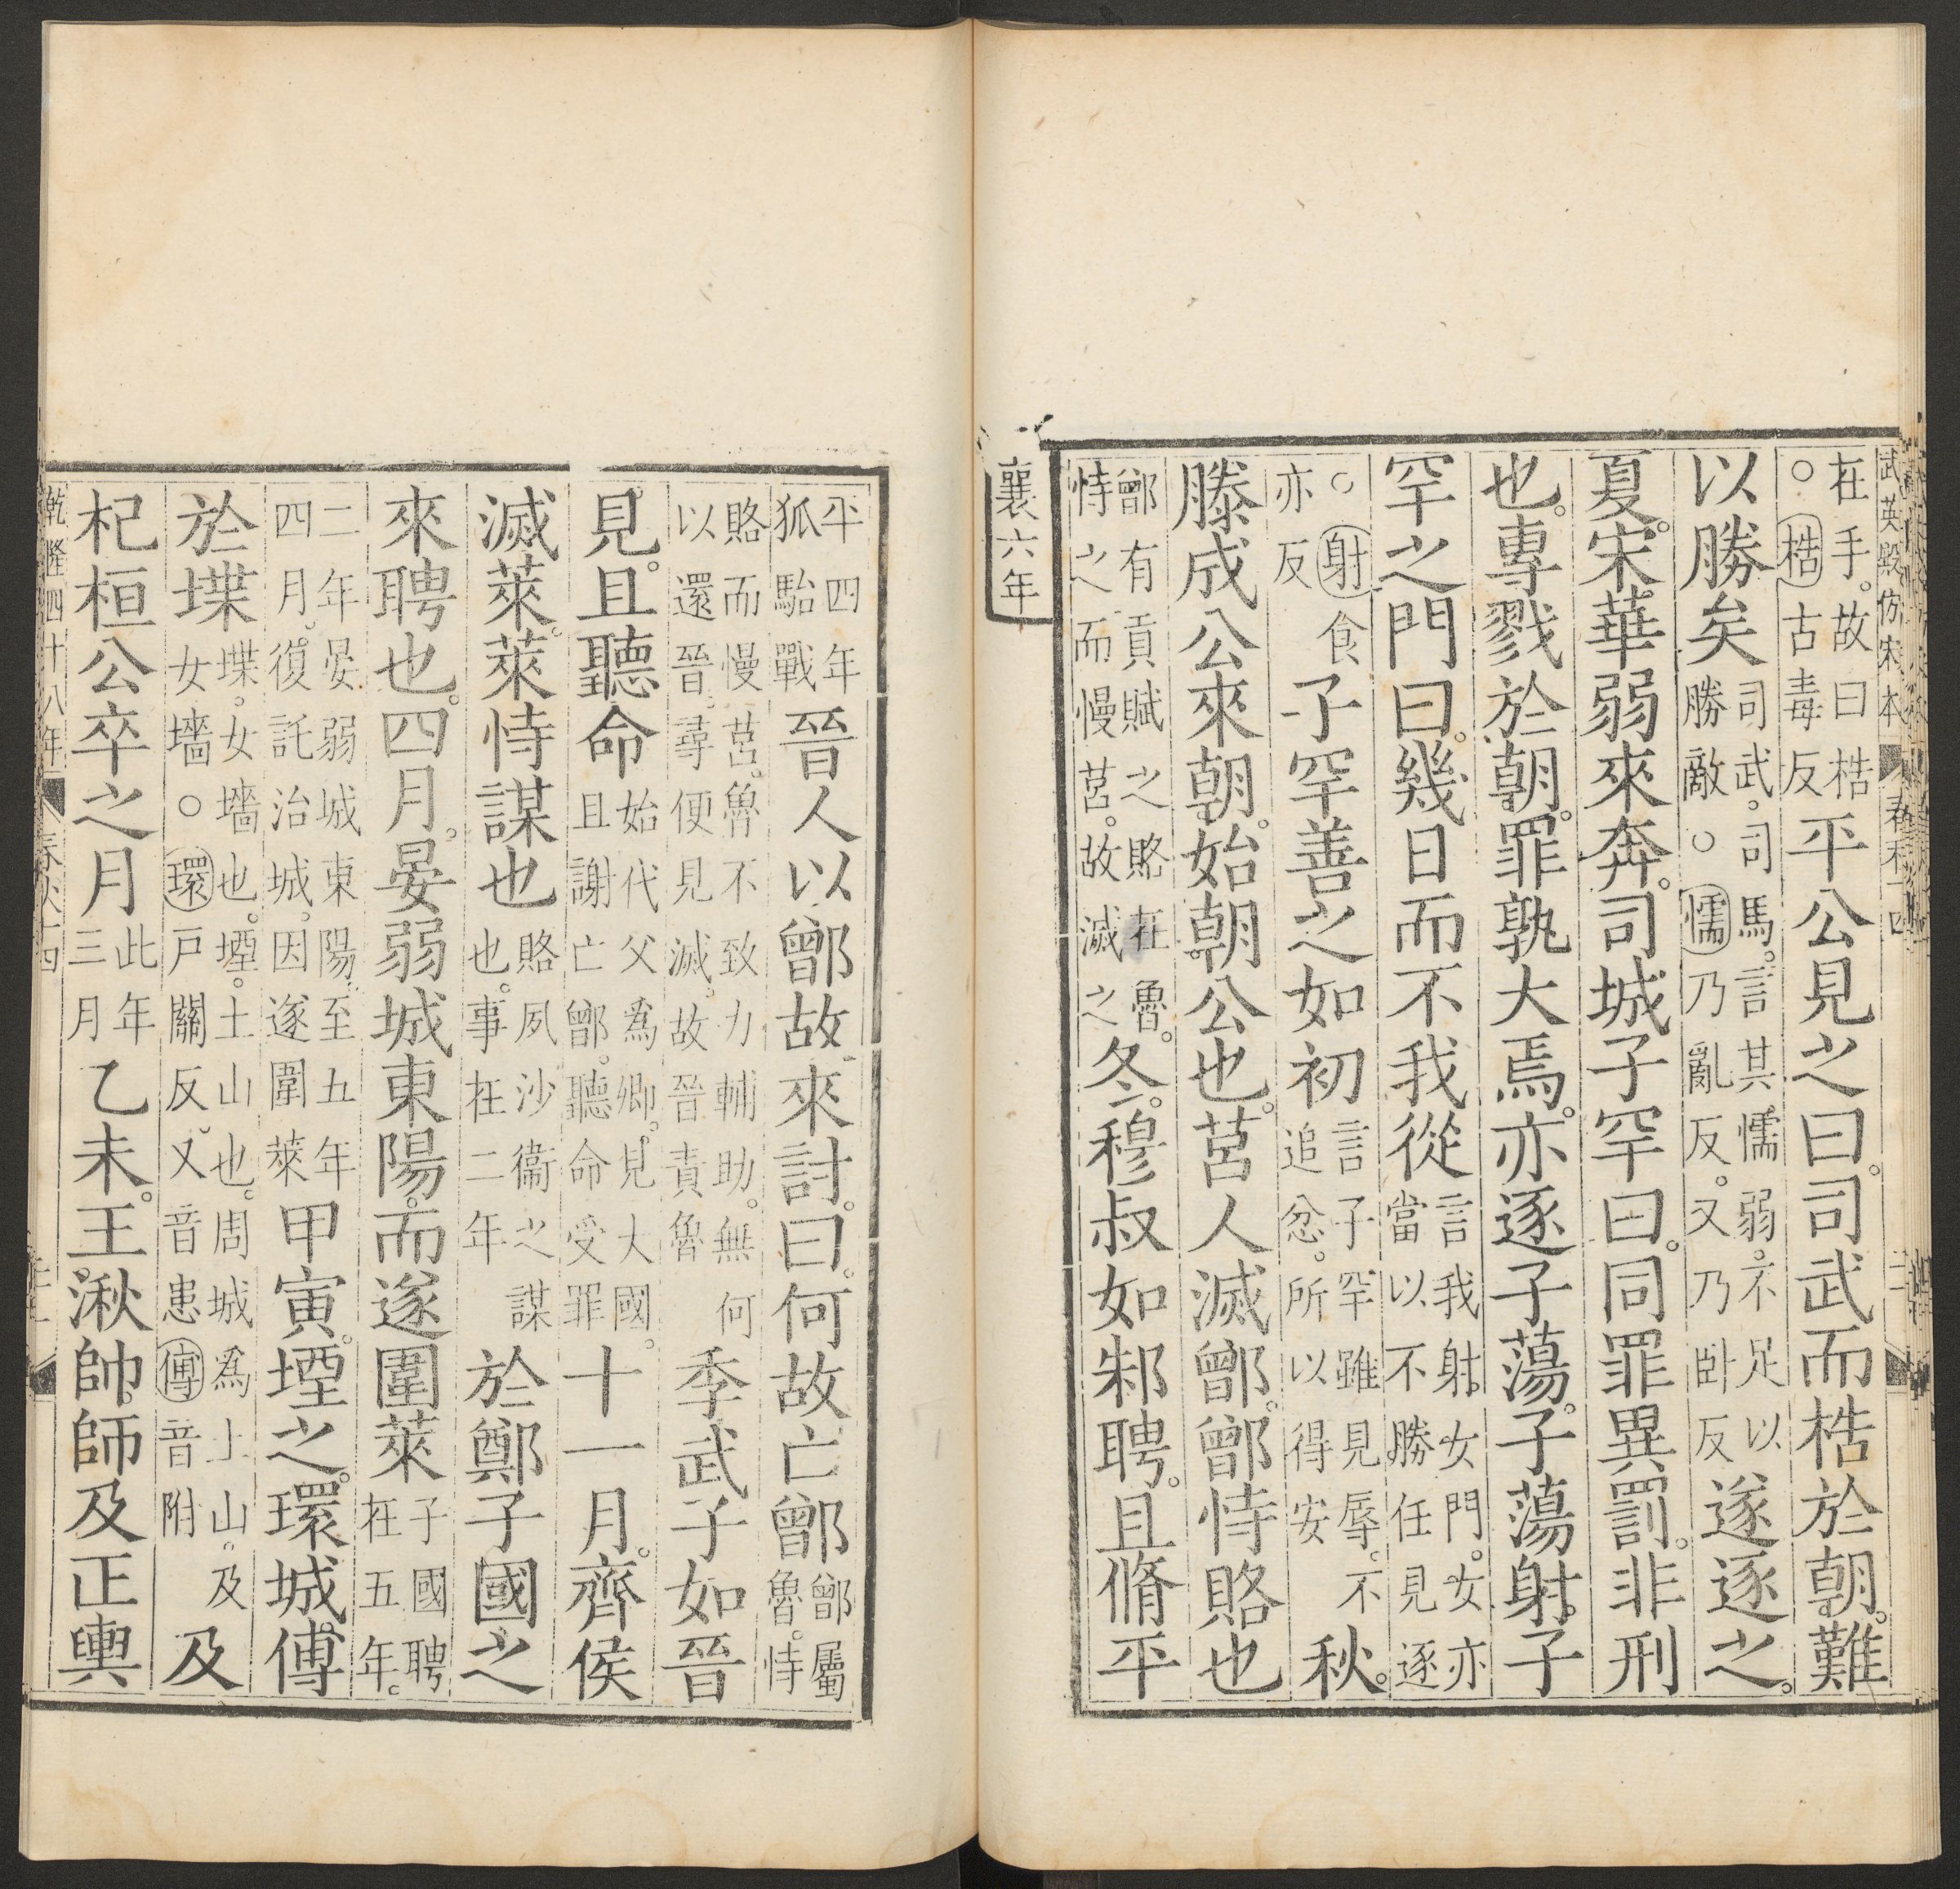 武英殿仿宋本 春秋十四
在手。故曰梏○梏古毒反平公見之曰。司武而梏於朝。難
以勝矣司武。司馬。言其懦弱。不足以勝敵○懦乃亂反。又乃卧反遂逐之。
夏。宋華弱來奔。司城子罕曰。同罪異罰。非刑
也。專戮於朝。罪孰大焉。亦逐子蕩。子蕩射子
罕之門曰。幾日而不我從言我射女門。女亦當以不勝任見逐
○射食亦反子罕善之如初言子罕雖見辱。不追忿。所以得安秋。
滕成公來朝。始朝公也。莒人滅鄫。鄫恃賂也
鄫有貢賦之賂在魯。恃之而慢莒。故滅之冬。穆叔如邾聘。且脩平
襄六年
平四年狐駘戰晉人以鄫故來討。曰。何故亡鄫鄫屬魯。恃
賂而慢莒。魯不致力輔助。無何以還晉。尋便見滅。故晉責魯季武子如晉
見。且聽命始代父爲卿。見大國。且謝亡鄫。聽命受罪十一月。齊侯
滅萊。萊恃謀也賂夙沙衞之謀也。事在二年於鄭子國之
來聘也。四月。晏弱城東陽。而遂圍萊子國聘在五年。
二年晏弱城東陽。至五年四月。復託治城。因遂圍萊甲寅。堙之。環城。傅
於堞堞。女墻也。堙。土山也。周城爲上山。及女墻○環戶關反。又音患傅音附及
杞桓公卒之月此年三月乙未。王湫帥師及正輿
乾隆四十八年 春秋十四